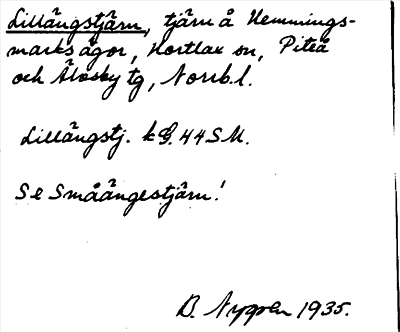 Lillängstjärn, tjärn å Hemmings-
marks ägor, Hortlax sn, Piteå
och Älvsby tg, Norrb.l.
Lillängstj. kG. 44 SM.
Se Småängestjärn!
B. Nygren 1935.